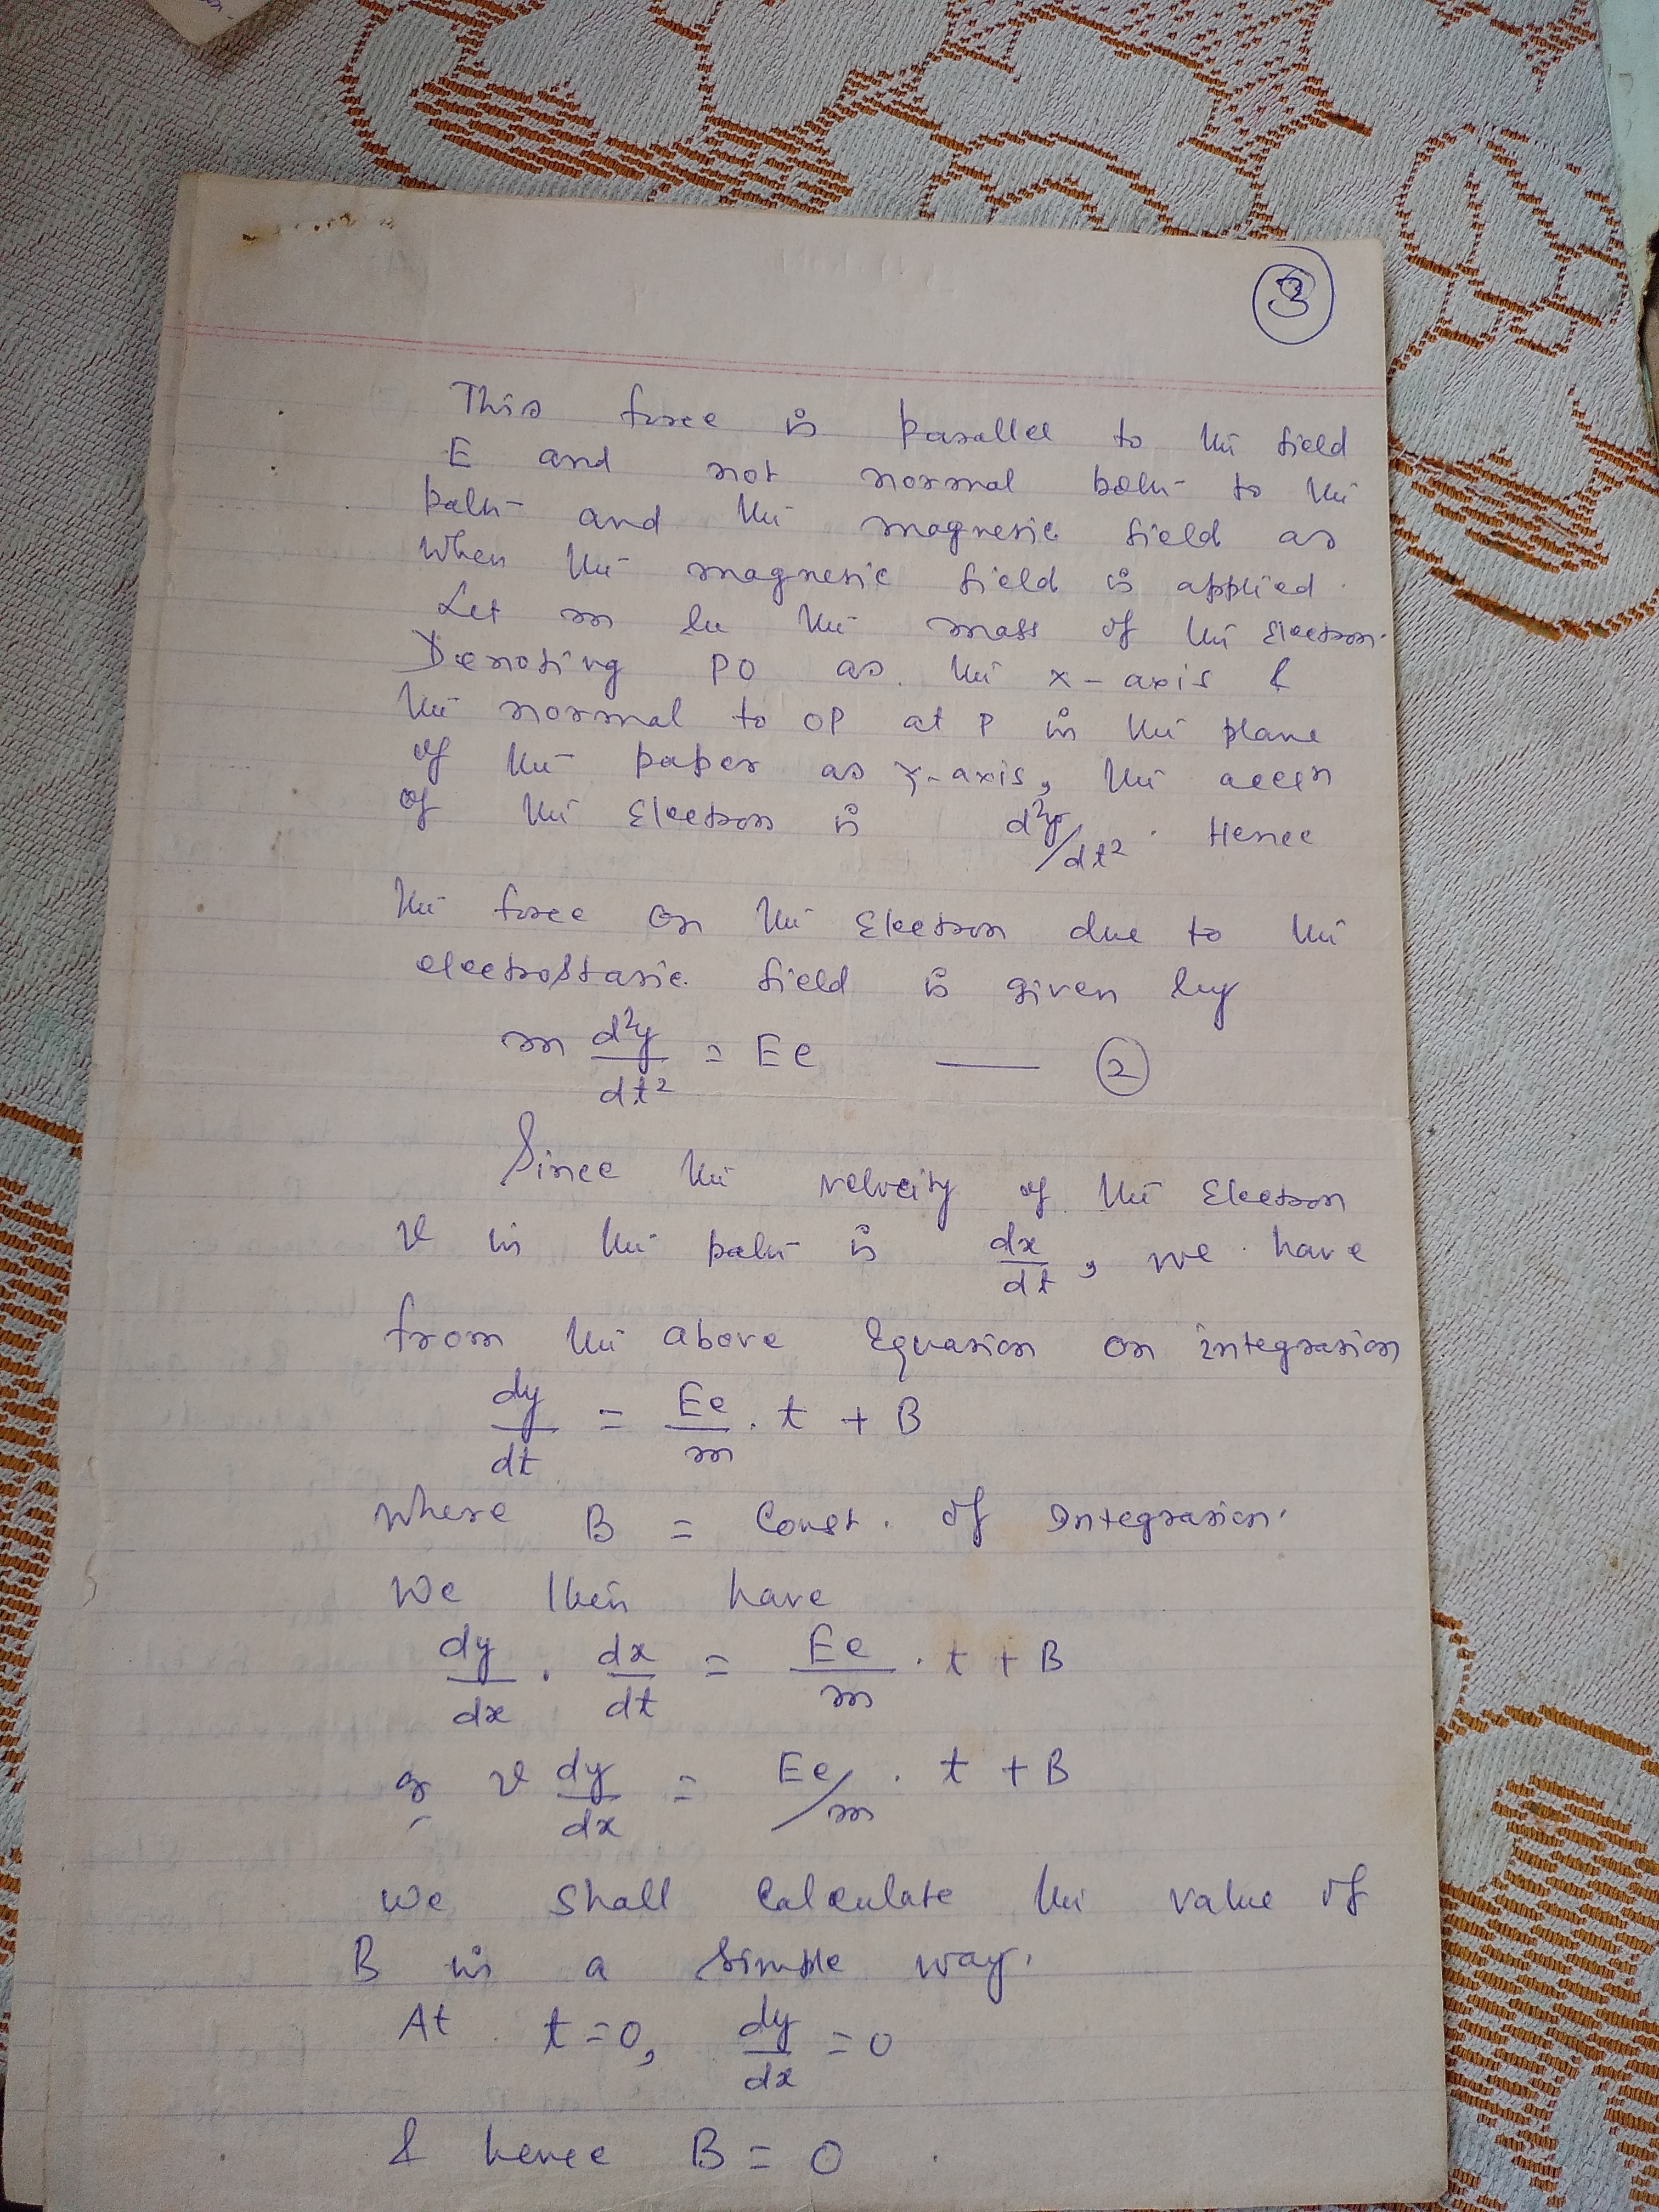 3
This force is parallel to the field
E and not normal both to the
path and the magnetic field as
when the magnetic field is applied.
Let m be the mass of the Electron.
Denoting PO as the x-axis &
the normal to OP at P in the plane
of the paper as Y-axis, the accn
of the Electron is d²y/dt². Hence
the force on the Electron due to the
electrostatic field is given by
m d²y/dt² = Ee —— 2
Since the velocity of the Electron
v in the path is dx/dt, we have
from the above Equation on integration
dy/dt = Ee/m . t + B
where B = Const. of Integration.
We then have
dy/dx . dx/dt = Ee/m . t + B
or v dy/dx = Ee/m . t + B
We shall Calculate the value of
B in a simple way.
At t=0, dy/dx = 0
& hence B = 0.